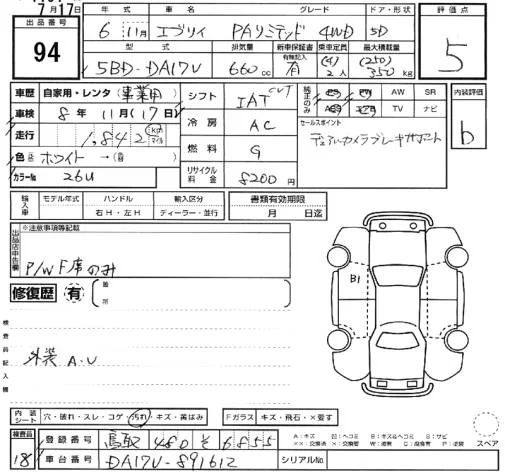 7月17日
出品番号
94
年式 車名 グレード ドア・形状
6 11月 エブリイ PAリミテッド 4WD 5D
型式 排気量 新車保証書 乗車定員 最大積載量
有無記入
5BD-DA17V 660 cc 有 (4) 2人 (250) 350 kg
評価点
5
車歴 自家用・レンタ 事業用
車検 8年 11月(17日)
走行 1,842 km マイル
色 ホワイト →(替)
カラーNo 26U
シフト IAT CVT
冷房 AC
燃料 G
リサイクル料金 8200円
純正のみ
AW SR
TV ナビ
セールスポイント
デュアルカメラブレーキサポート
内装評価
b
輸入車 モデル年式 ハンドル 輸入区分
右H・左H ディーラー・並行
書類有効期限
月 日迄
出品店申告欄
※注意事項等記載
P/W F席のみ
修復歴 有 箇所
検査員記入欄
外装 A・U
B1
内装シート 穴・破れ・スレ・コゲ・汚れ・キズ・黄ばみ
Fガラス キズ・飛石・×要す
検査員
18
登録番号 鳥取 480 を 6855
車台番号 DA17V-891612
シリアルNo.
A:キズ U:ヘコミ B:キズ&ヘコミ S:サビ
××:交換済 ×:交換要 W:波有 C:腐食有 P:塗装
スペア